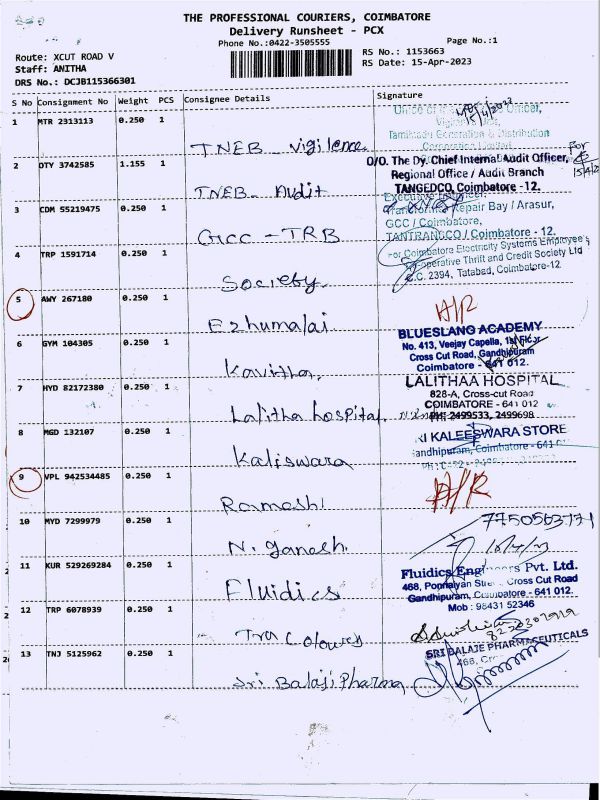 THE PROFESSIONAL COURIERS, COIMBATORE
Delivery Runsheet - PCX
Phone No.:0422-3505555
Page No.:1
Route: XCUT ROAD V
Staff: ANITHA
DRS No.: DCJB115366301
RS No.: 1153663
RS Date: 15-Apr-2023
S No Consignment No Weight PCS Consignee Details Signature
1 MTR 2313113 0.250 1
TNEB - Vigilence
Vigilance
Tamilnadu Generation & Distribution
Corporation Limited
15/4/2023
2 DTY 3742585 1.155 1
TNEB - Audit
O/O. The Dy. Chief Internal Audit Officer,
Regional Office / Audit Branch
TANGEDCO, Coimbatore - 12.
For
3 CDM 55219475 0.250 1
GCC - TRB
Executive Engineer,
Transformer Repair Bay / Arasur,
GCC / Coimbatore,
TANTRANSCO / Coimbatore - 12.
4 TRP 1591714 0.250 1
Society
For Coimbatore Electricity Systems Employee's
Co-operative Thrift and Credit Society Ltd
C.C. 2394, Tatabad, Coimbatore-12
5 AWY 267180 0.250 1
Ezhumalai
A/R
6 GYM 104305 0.250 1
Kavitha
BLUESLANG ACADEMY
No. 413, Veejay Capella, 1st Floor
Cross Cut Road, Gandhipuram
Coimbatore - 641 012.
7 HYD 82172380 0.250 1
Lalitha hospital
LALITHAA HOSPITAL
828-A, Cross-cut Road
COIMBATORE - 641 012
PH: 2499533, 2499698
8 MGD 132107 0.250 1
Kaliswara
KALEESWARA STORE
Gandhipuram, Coimbatore - 641 012
9 VPL 942534485 0.250 1
Ramesh
A/R
10 MYD 7299979 0.250 1
N. ganesh
7750563171
11 KUR 529269284 0.250 1
Fluidics
Fluidics Engineers Pvt. Ltd.
468, Popnaiyan Street, Cross Cut Road
Gandhipuram, Coimbatore - 641 012.
Mob : 98431 52346
12 TRP 6078939 0.250 1
Tra Colours
13 TNJ 5125962 0.250 1
Sri Balaji Pharma
SRI BALAJE PHARMACEUTICALS
466,